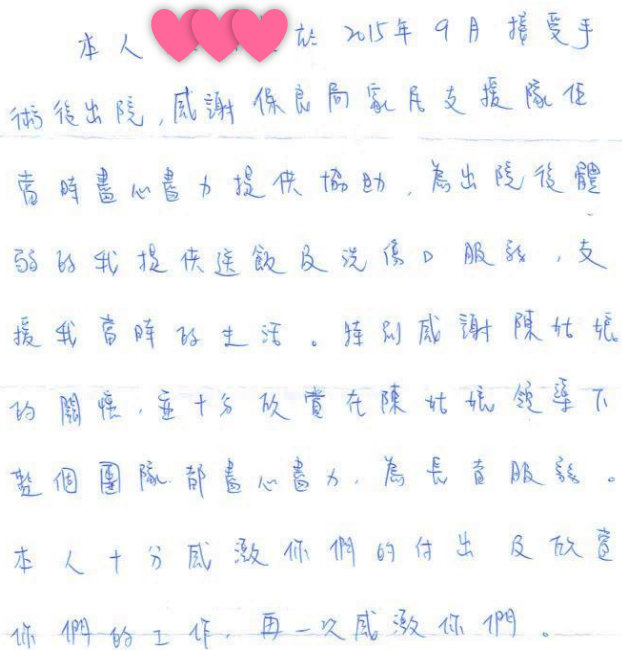 本人 於 2015年 9 月 接受手
術後出院,感謝保良局家居支援隊伍
當時盡心盡力提供協助,為出院後體
弱的我提供送飯及洗傷口服務,支
援我當時的生活。特別感謝陳姑娘
的關懷,並十分欣賞在陳姑娘領導下
整個團隊都盡心盡力,為長者服務。
本人十分感激你們的付出及欣賞
你們的工作,再一次感激你們。